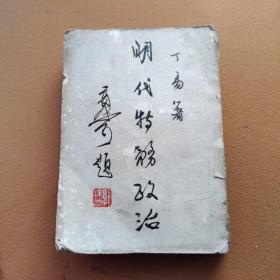 丁易著
明代特務政治
题